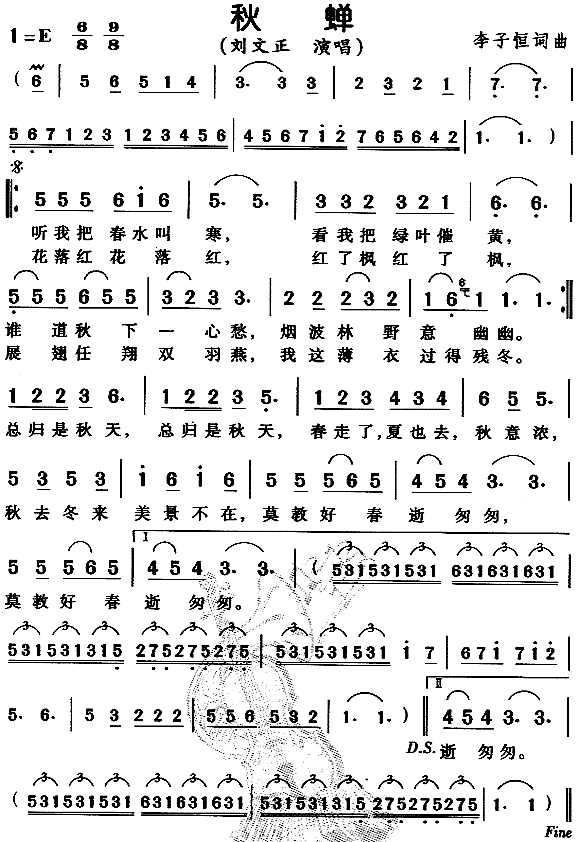 秋 蝉
1=E 6/8 9/8 (刘文正 演唱) 李子恒词曲
( 6 | 5 6 5 1 4 | 3· 3 3 | 2 3 2 1 | 7· 7· |
5 6 7 1 2 3 1 2 3 4 5 6 | 4 5 6 7 1 2 7 6 5 6 4 2 | 1· 1· ) |
5 5 5 6 1 6 | 5· 5· | 3 3 2 3 2 1 | 6· 6· |
听我把 春水叫 寒, 看我把 绿叶催 黄,
花落红 花 落 红, 红了枫 红 了 枫,
5 5 5 6 5 5 | 3 2 3 3· | 2 2 2 3 2 2 | 1 6 1 1· 1· :|
谁 道秋 下 一 心愁, 烟波林 野意 幽幽。
展 翅任 翔 双 羽燕, 我这薄 衣 过得残冬。
1 2 2 3 6· | 1 2 2 3 5· | 1 2 3 4 3 4 | 6 5 5· |
总归是秋天, 总归是秋天, 春走了,夏也去, 秋意浓,
5 3 5 3 | 1 6 1 6 | 5 5 5 6 5 | 4 5 4 3· 3· |
秋去冬来 美景不在,莫教好 春 逝 匆匆,
1
5 5 5 6 5 | 4 5 4 3· 3· | ( 5 3 1 5 3 1 5 3 1 6 3 1 6 3 1 6 3 1 |
莫教好 春 逝 匆匆。
5 3 1 5 3 1 3 1 5 2 7 5 2 7 5 2 7 5 | 5 3 1 5 3 1 5 3 1 1 7 | 6 7 1 7 1 2 |
5· 6· | 5 5 2 2 2 | 5 5 6 5 3 2 | 1· 1· ) || 4 5 4 3· 3· |
II
D.S. 逝 匆匆。
( 5 3 1 5 3 1 5 3 1 6 3 1 6 3 1 6 3 1 | 5 3 1 5 3 1 3 1 5 2 7 5 2 7 5 2 7 5 | 1· 1 )
Fine